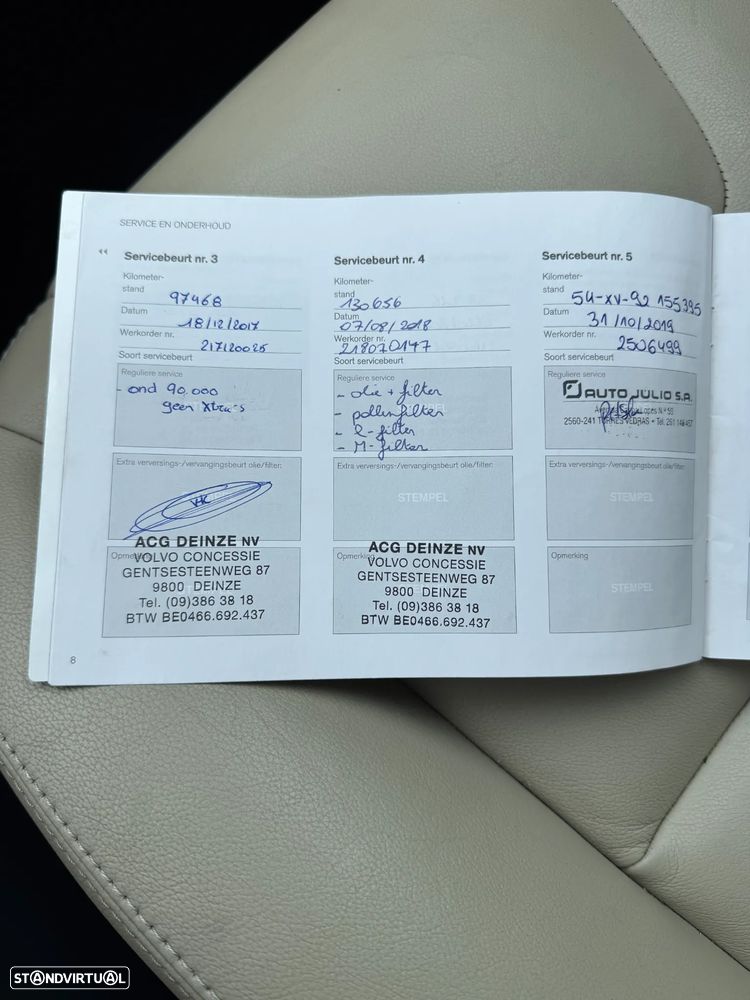 SERVICE EN ONDERHOUD
Servicebeurt nr. 3
Kilometer-
stand 97468
Datum 18/12/2017
Werkorder nr. 217120025
Soort servicebeurt
Reguliere service
- ond 90.000
geen xtra's
Extra verversings-/vervangingsbeurt olie/filter:
ACG DEINZE NV
Opmerking VOLVO CONCESSIE
GENTSESTEENWEG 87
9800 DEINZE
Tel. (09)386 38 18
BTW BE0466.692.437
Servicebeurt nr. 4
Kilometer-
stand 130656
Datum 07/08/2018
Werkorder nr. 218070147
Soort servicebeurt
Reguliere service
- olie + filter
- pollenfilter
- l-filter
- M-filter
Extra verversings-/vervangingsbeurt olie/filter:
STEMPEL
ACG DEINZE NV
Opmerking VOLVO CONCESSIE
GENTSESTEENWEG 87
9800 DEINZE
Tel. (09)386 38 18
BTW BE0466.692.437
Servicebeurt nr. 5
Kilometer-
stand 54-XV-92 155395
Datum 31/10/2019
Werkorder nr. 2506499
Soort servicebeurt
Reguliere service
AUTO JÚLIO S.A.
Lopes N.º 50
2560-241 TORRES VEDRAS - Tel. 261
Extra verversings-/vervangingsbeurt olie/filter:
STEMPEL
Opmerking
STEMPEL
8
STANDVIRTUAL